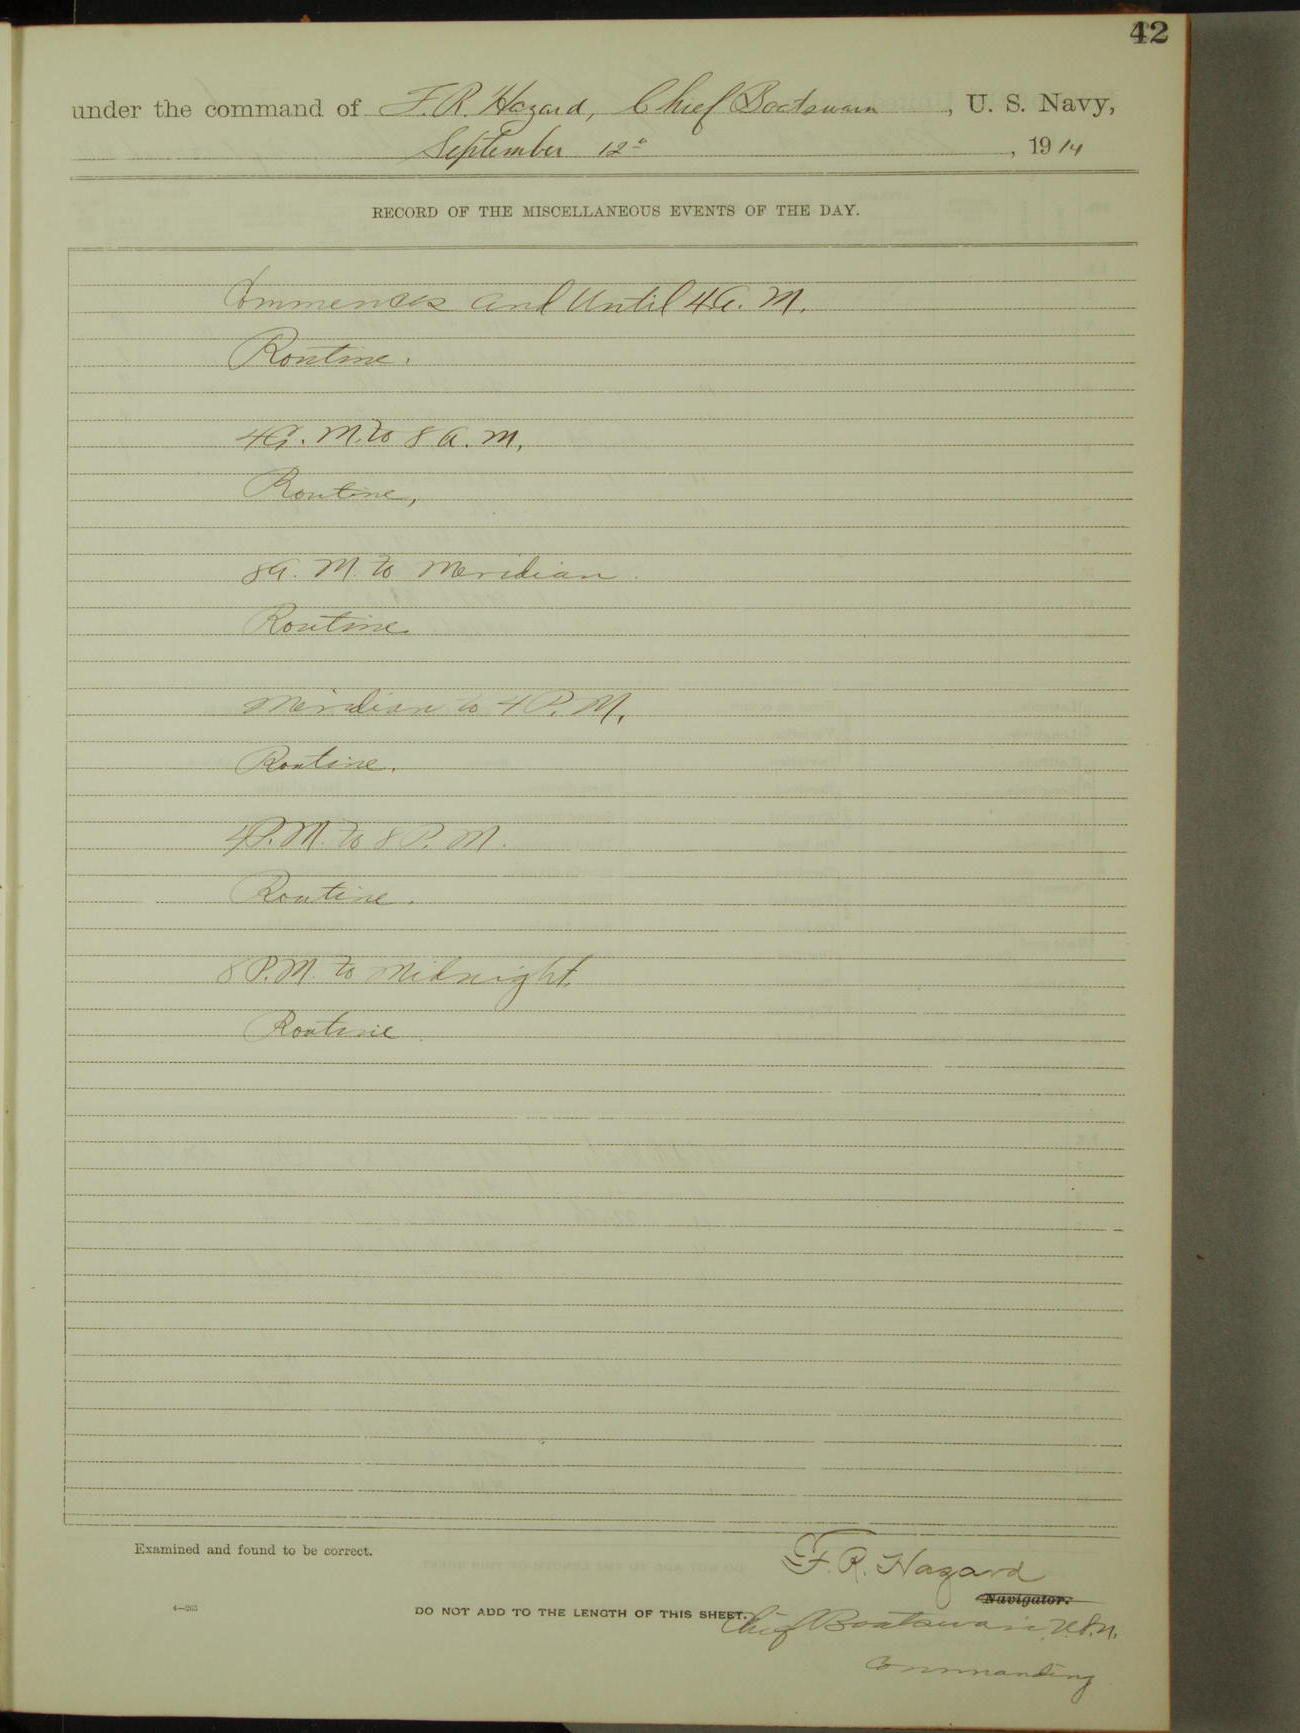 42
under the command of F. R. Hazard, Chief Boatswain, U. S. Navy,
September 12th, 1914
RECORD OF THE MISCELLANEOUS EVENTS OF THE DAY.
Commences and Until 4 A. M.
Routine.
4 A. M. to 8 A. M.
Routine,
8 A. M. to Meridian.
Routine.
Meridian to 4 P. M.
Routine.
4 P. M. to 8 P. M.
Routine.
8 P. M. to Midnight.
Routine
Examined and found to be correct.
F. R. Hazard
Navigator.
4—263
DO NOT ADD TO THE LENGTH OF THIS SHEET.
Chief Boatswain, U.S.N.
Commanding